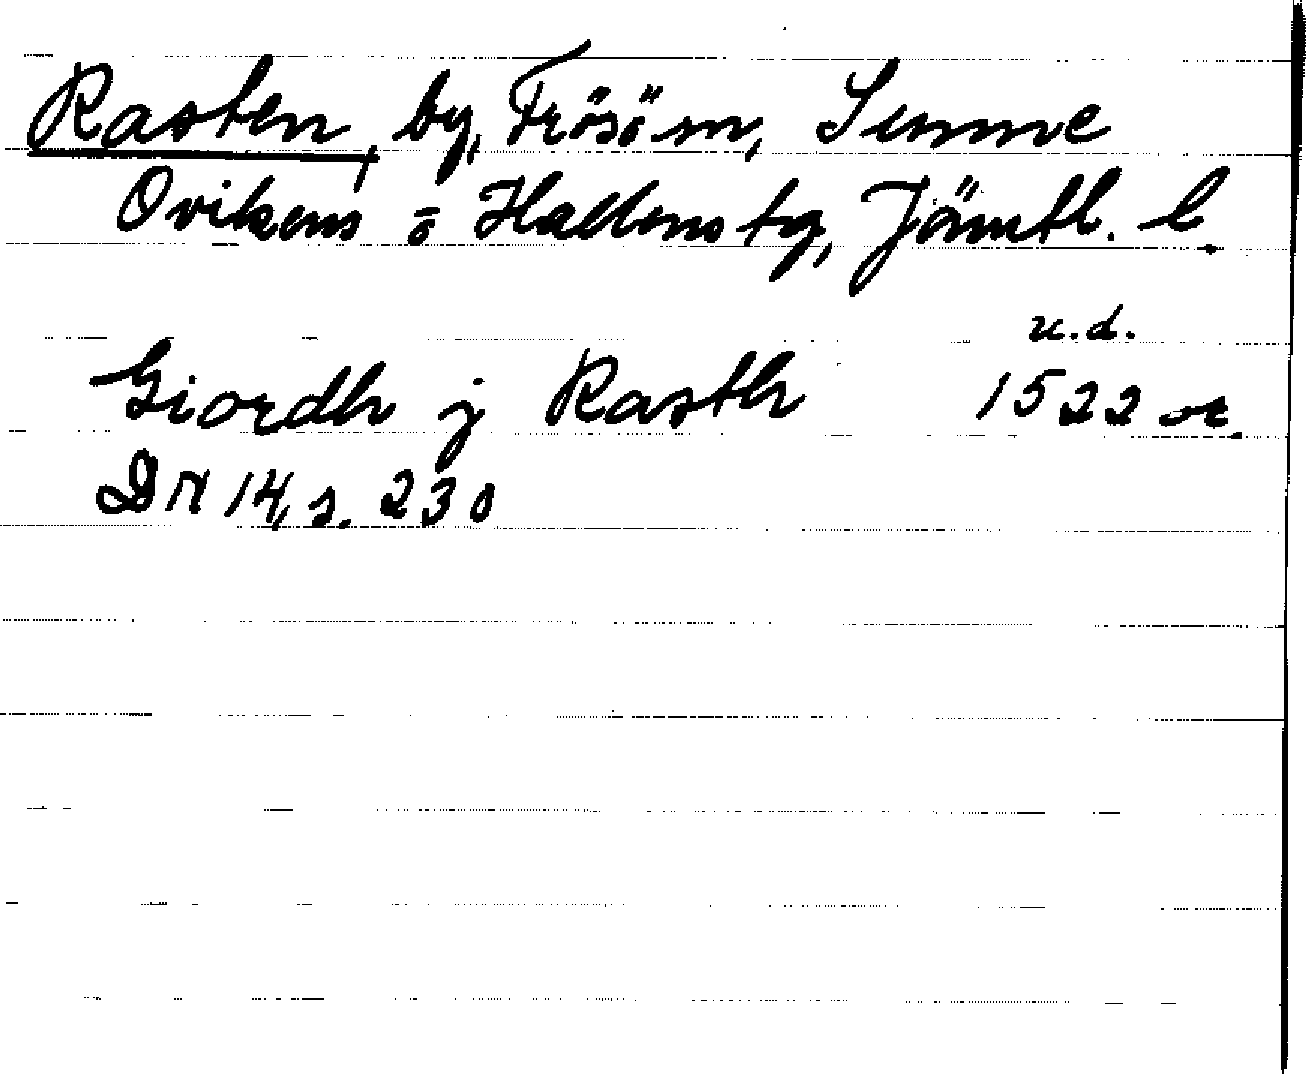 Rasten, by, Frösö sn, Sunne
Ovikens o Hallens tg, Jämtl. l.
u.d.
Giordh j Rasth 1522 or.
DN 14, s. 230